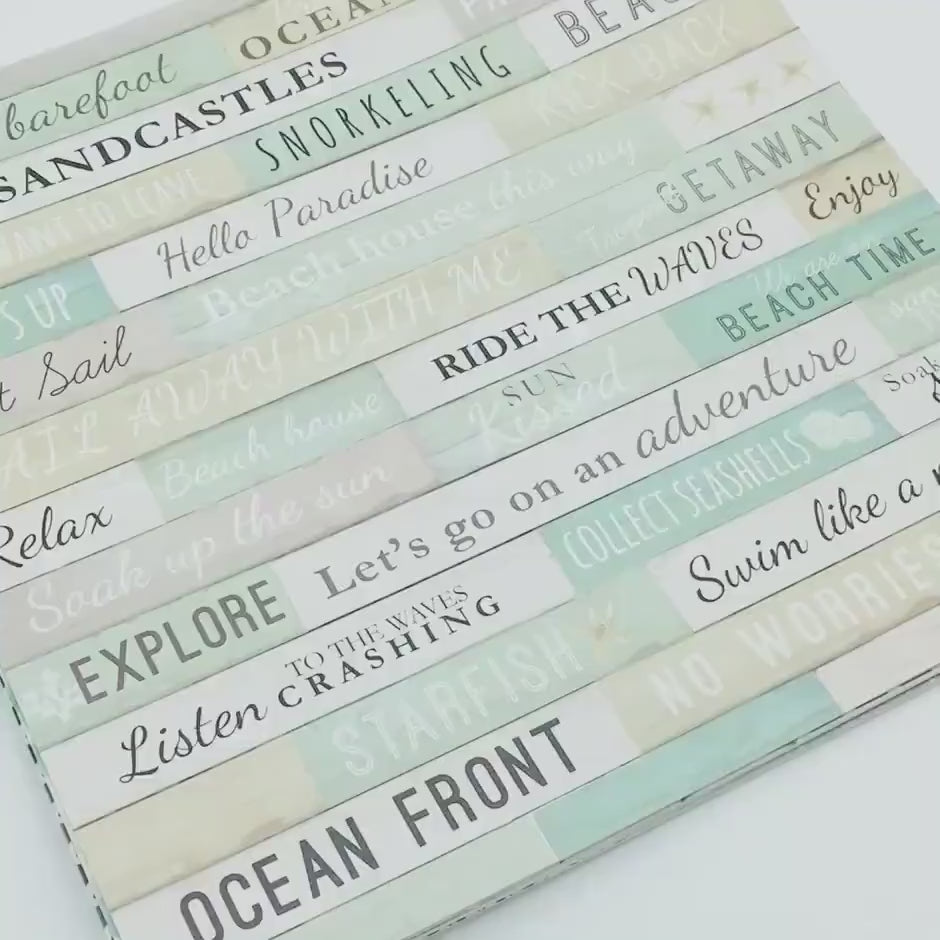 barefoot OCEAN
SANDCASTLES BEAC
SNORKELING KICK BACK
WANT TO LEAVE Hello Paradise
S UP Beach house this way GETAWAY
t Sail SAIL AWAY WITH ME Enjoy
RIDE THE WAVES
Beach house BEACH TIME
Relax SUN Kissed We are
Soak up the sun
EXPLORE Let's go on an adventure Soak
TO THE WAVES COLLECT SEASHELLS
Listen CRASHING Swim like a
STARFISH NO WORRIES
OCEAN FRONT